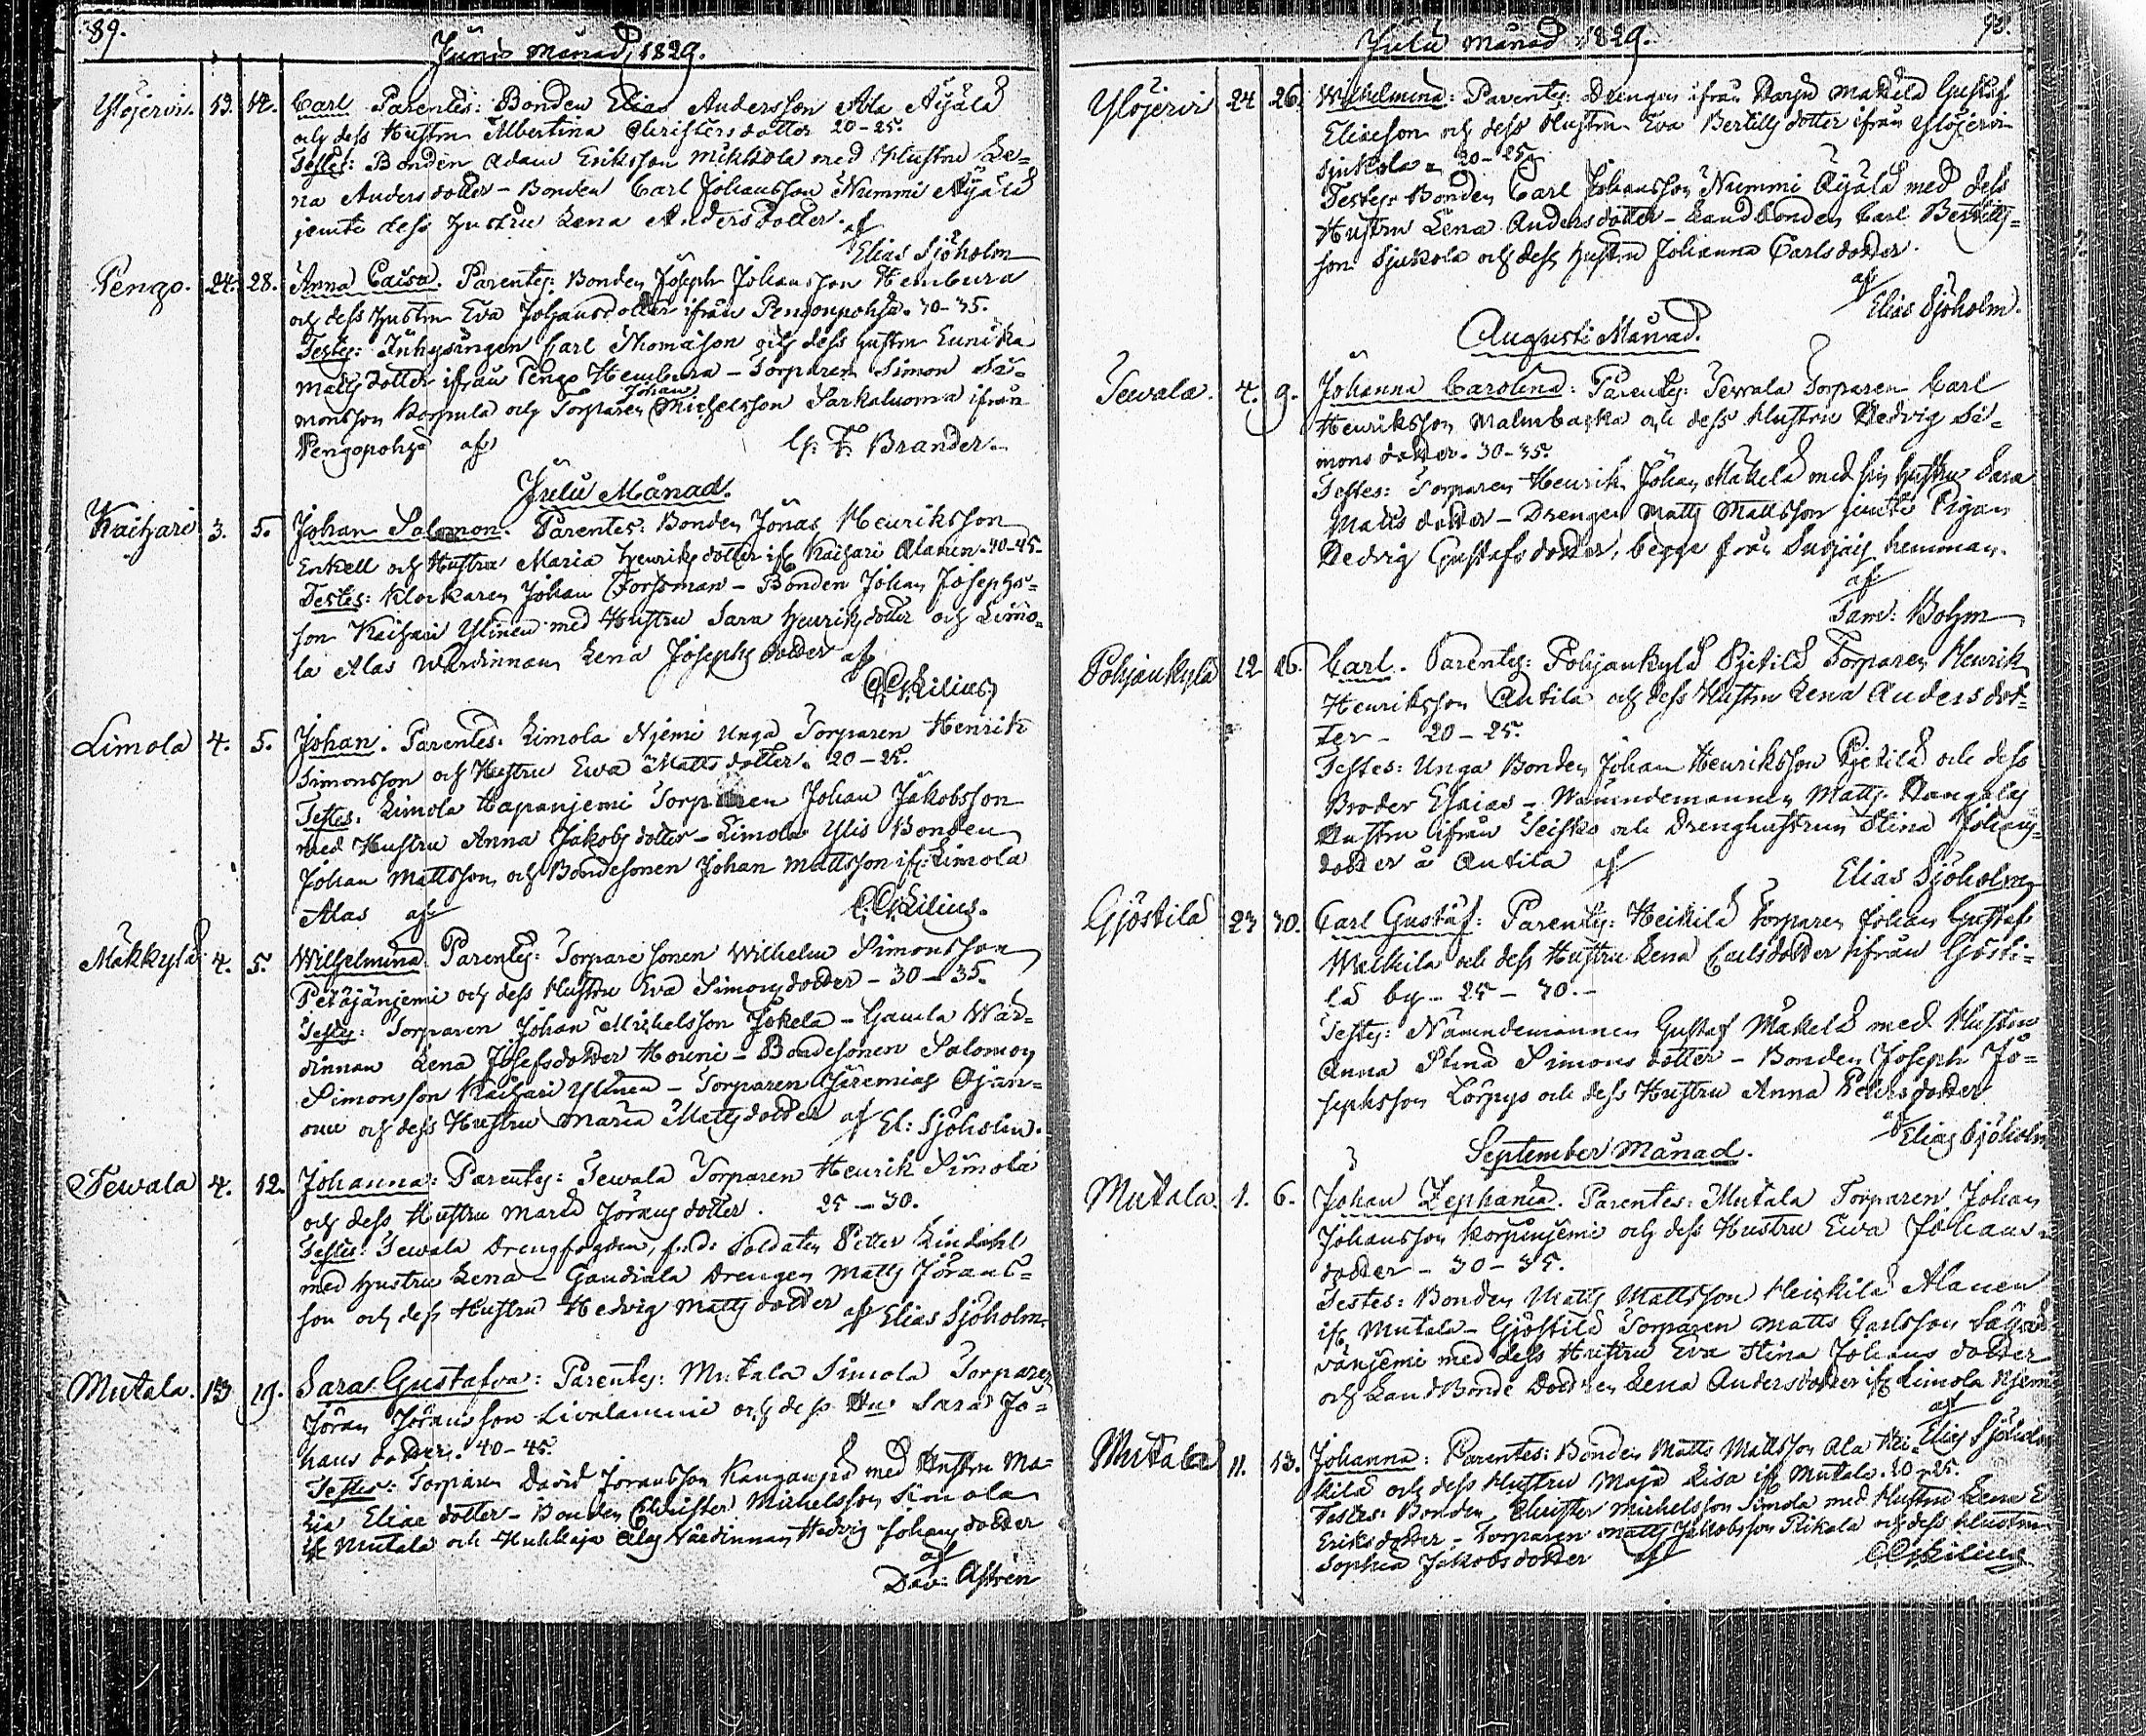 89.
Junii Månad, 1829.
Ylöjervi. 13. 14. Carl. Parentes: Bonden Elias Andersson Ala Äijälä
och dess Hustru Albertina Christersdotter 20-25.
Testes: Bonden Adam Eriksson Mikkola med Hustru Le=
na Andersdotter - Bonden Carl Johansson Nummi Äijälä
jemte dess Hustru Lena Andersdotter. af
Elias Sjöholm
Pengo. 24. 28. Anna Caisa. Parentes: Bonden Joseph Johansson Hembura
och dess Hustru Eva Johansdotter ifrån Pengonpohja. 30-35.
Testes: Inhysingen Carl Thomason och dess hustru Eunika
Mattsdotter ifrån Pengo Hembura - Torparen Simon Si=
Johan
monsson Korpula och Torparen Michelsson Sarkaluoma ifrån
Pengopohja af G. F. Brander.
Julii Månad.
Kaihari 3. 5. Johan Salomon. Parentes: Bonden Jonas Henriksson
Enkell och Hustru Maria Henriksdotter if: Kaihari Alanen. 40-45.
Testes: Klockaren Johan Forssman - Bonden Johan Josephs=
son Kaihari Ylinen med Hustru Sara Henriksdotter och Limo=
la Alas Värdinnan Lena Josephsdotter af
C. C. Lilius
Limola 4. 5. Johan. Parentes: Limola Njemi Unga Torparen Henrik
Simonsson och Hustru Ewa Mattsdotter. 20-25.
Testes. Limola Hapanjemi Torparen Johan Jakobsson
med Hustru Anna Jakobsdotter - Limola Ylis Bonden
Johan Mattsson, och Bondesonen Johan Mattsson if: Limola
Alas af C. C. Lilius.
Mäkkylä 4. 5. Wilhelmina. Parentes: Torparesonen Wilhelm Simonsson
Petäjänjemi och dess Hustru Eva Simonsdotter - 30-35.
Testes: Torparen Johan Michelsson Jokela - Gamla Wär=
dinnan Lena Josefsdotter Honni - Bondesonen Salomon
Simonsson Kaihari Ylinen - Torparen Jeremias Ojan=
suu och dess Hustru Maria Mattsdotter af El: Sjöholm.
Tewala 4. 12. Johanna: Parentes: Tewala Torparen Henrik Simola
och dess Hustru Maria Jöransdotter. 25-30.
Testes: Tewala Drengfogden, f.d. Soldaten Petter Lindahl
med hustru Lena - Gaudiala Drengen Matts Jörans=
son och dess Hustru Hedvig Mattsdotter af Elias Sjöholm.
Mutala. 13 19. Sara Gustafva: Parentes: Mutala Simola Torparen
Jöran Jöransson Livalammi och dess Hu: Sara Jo=
hansdotter. 40-45.
Testes: Torparen David Jöransson Kanganpä med Hustru Ma=
ria Eliaedotter - Bonden Christer Michelsson Simola
if: Mutala och Huhkaja Alas Värdinnan Hedvig Johansdotter
af
Dav: Astrén
90.
Julii månad 1829.
Ylöjervi 24 26. Wilhelmina: Parentes: Drengen ifrån Harju Makela Gustaf
Eliaeson och dess Hustru Eva Bertillsdotter ifrån Ylöjervi
Sjukola. 20-25.
Testes: Bonden Carl Johansson Nummi Äijälä med dess
Hustru Lena Andersdotter - Landbonden Carl Bertills=
son Sjukola och dess Hustru Johanna Carlsdotter.
af
Elias Sjöholm.
Augusti Månad.
Tewala. 4. 9. Johanna Carolina: Parentes: Tewala Torparen Carl
Henriksson Malmbacka och dess Hustru Hedvig Si=
monsdotter. 30-35.
Testes: Torparen Henrik Johan Mäkelä med sin Hustru Sara
Mattsdotter - Drengen Matts Mattsson jemte Pigan
Hedvig Gustafsdotter, begge från hemman.
af
Sam: Bohm
Pohjankylä 12 16. Carl. Parentes: Pohjankylä Pjetilä Torparen Henrik
Henriksson Antila och dess Hustru Lena Andersdot=
ter - 20-25.
Testes: Unga Bonden Johan Henriksson Pjetilä och dess
Broder Esaias - Nämndemannen Matts
Hustru ifrån Teisko och Drenghustrun Stina Johans=
dotter å Antila af
Elias Sjöholm
Gjöstilä 23 30. Carl Gustaf: Parentes: Heikilä Torparen Johan Gustaf
och dess Hustru Lena Carlsdotter ifrån Gjösti=
lä by - 25-30.-
Testes: Nämndemannen Gustaf Mäkelä med Hustru
Anna Stina Simonsdotter - Bonden Joseph Jo=
sephsson Lörpys och dess Hustru Anna Petersdotter
af Elias Sjöholm
September Månad.
Mutala. 1. 6. Johan Zephania. Parentes: Mutala Torparen Johan
Johansson Korpinjemi och dess Hustru Ewa Johans=
dotter - 30-35.
Testes: Bonden Matts Mattsson Heikilä Alanen
if: Mutala - Gjöstilä Torparen Matts Carlsson
med dess Hustru Eva Stina Johansdotter
och Landbonde Dottren Lena Andersdotter if: Limola Njemi
af
Elias Sjöholm
Mutala 11. 13. Johanna: Parentes: Bonden Matts Mattsson Ala Hei=
kilä och dess Hustru Maja Lisa if: Mutala. 20-25.
Testes: Bonden Christer Michelsson Simola med Hustru Lena E
Eriksdotter - Torparen Matts Jakobsson Pikala och dess Hustru
Sophia Jakobsdotter af C. C. Lilius